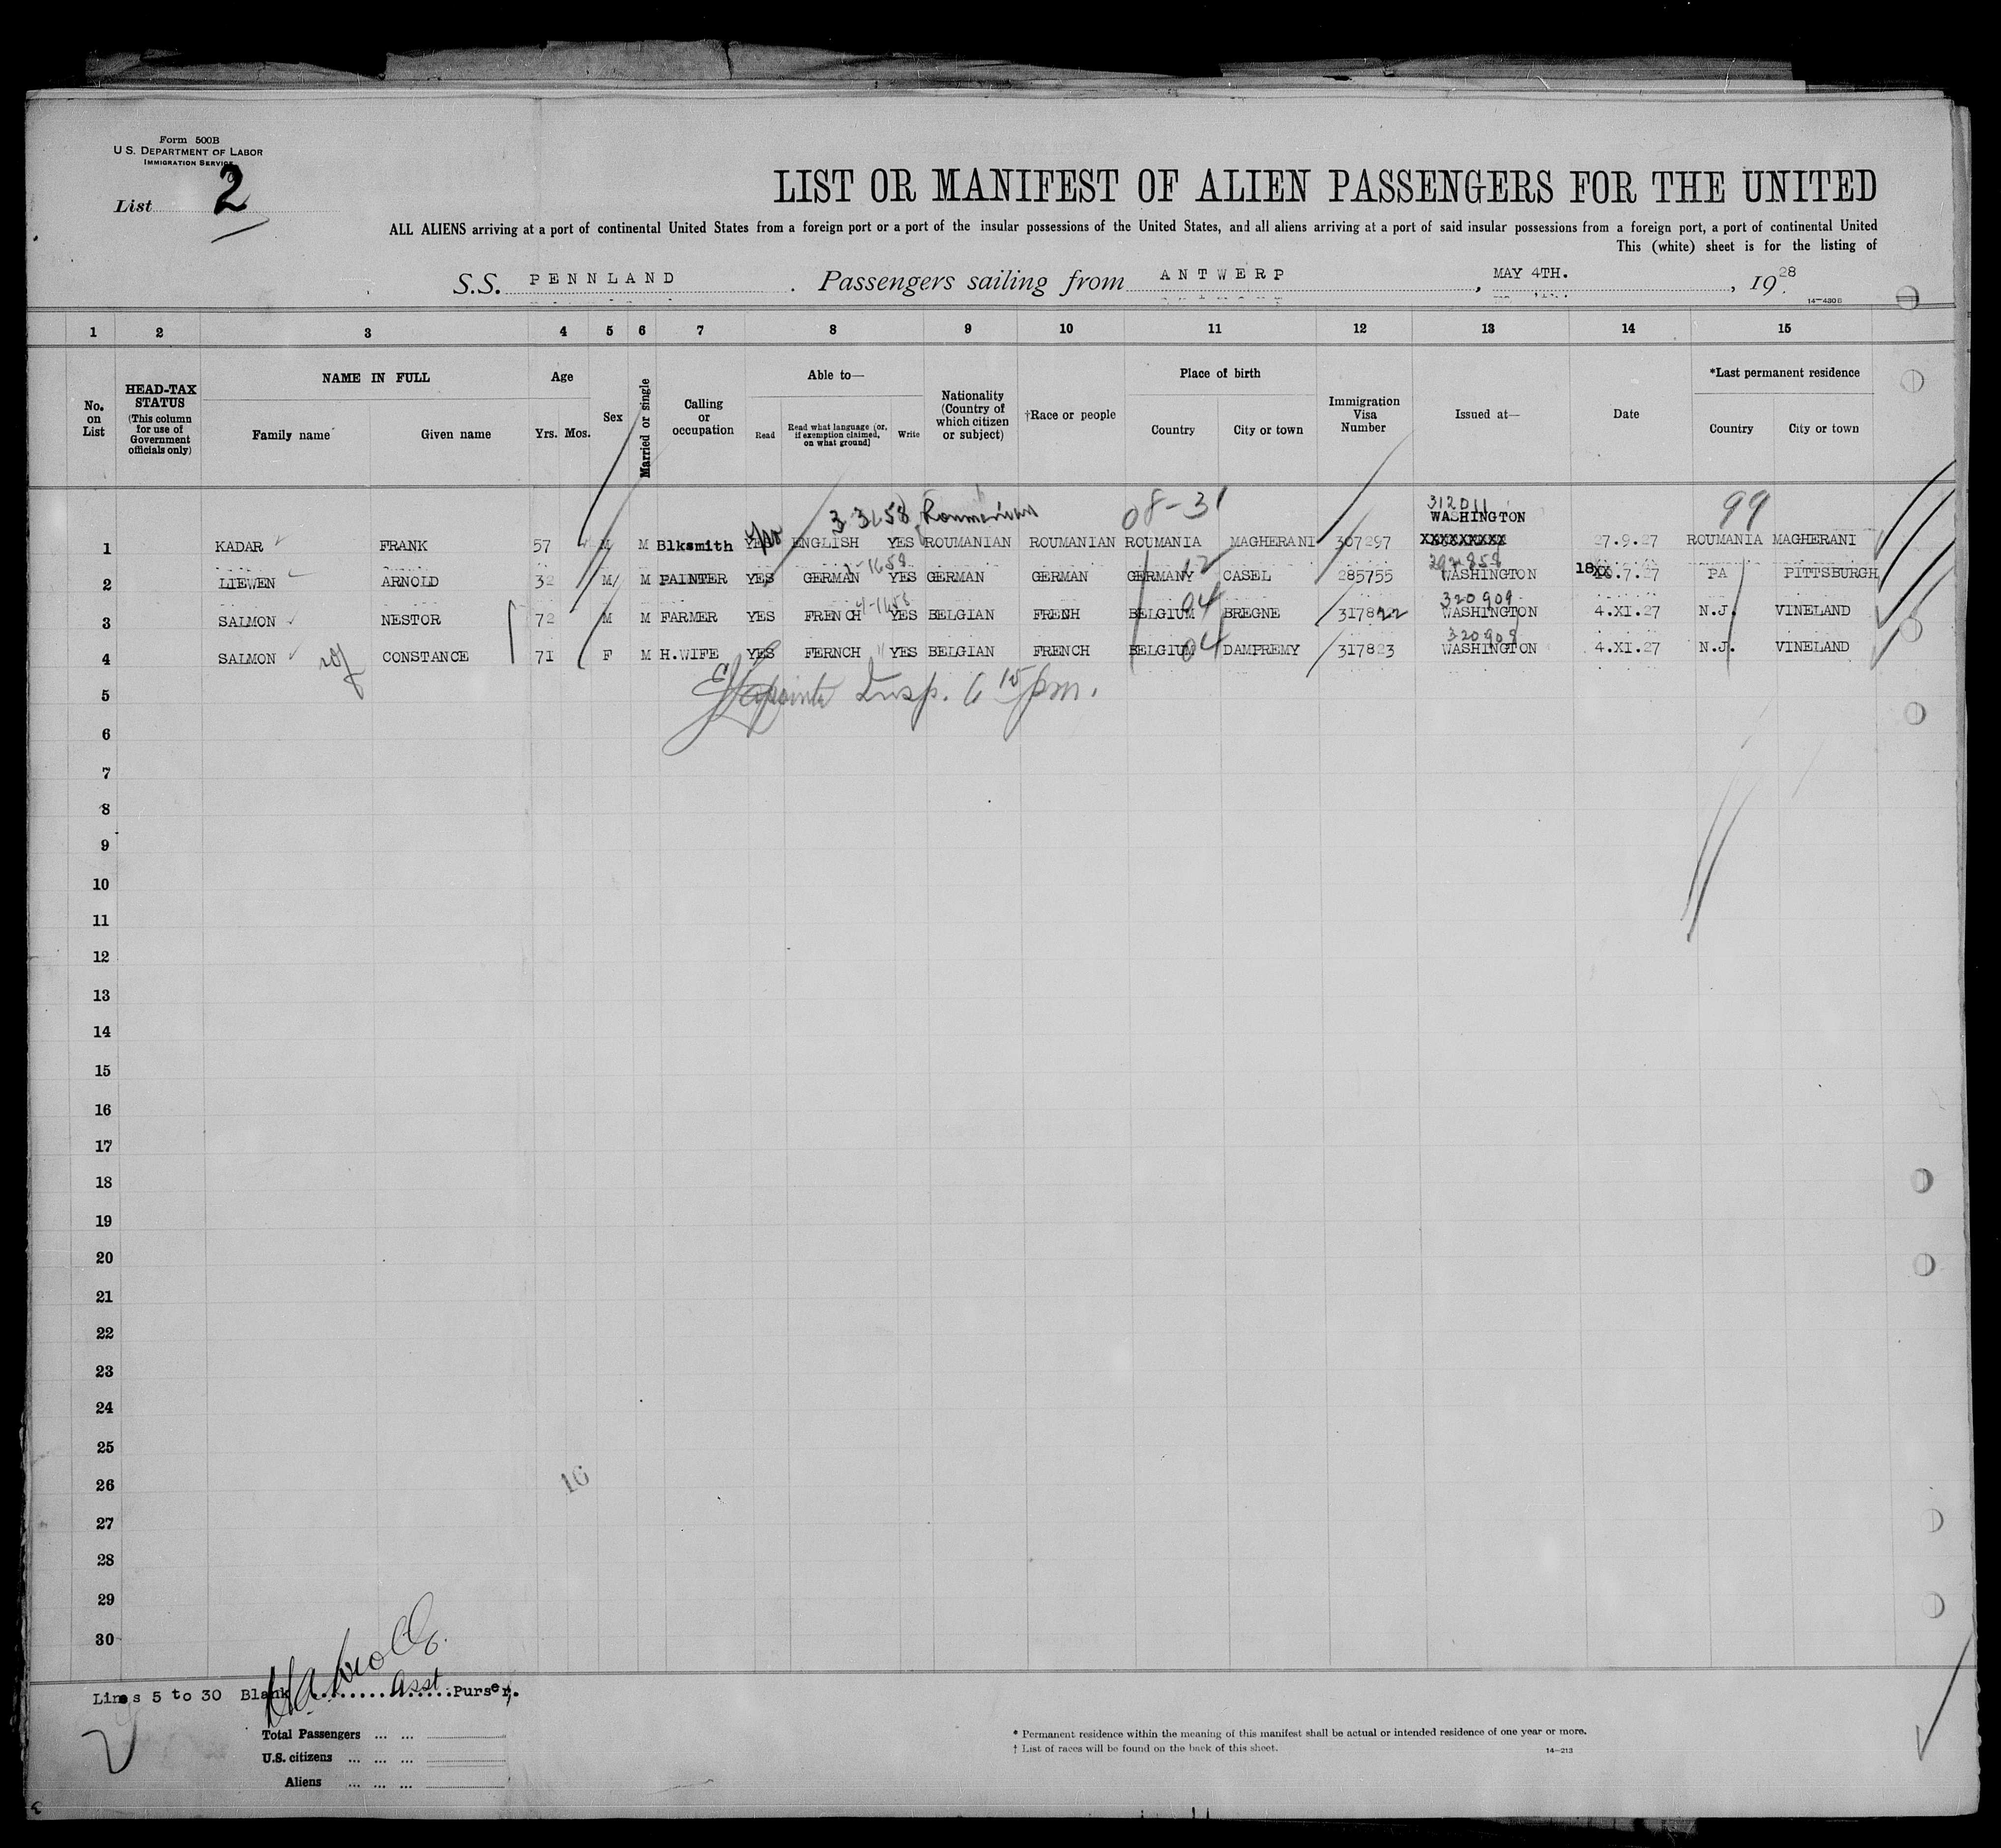 Form 500B
U.S. DEPARTMENT OF LABOR
IMMIGRATION SERVICE
List 2
LIST OR MANIFEST OF ALIEN PASSENGERS FOR THE UNITED
ALL ALIENS arriving at a port of continental United States from a foreign port or a port of the insular possessions of the United States, and all aliens arriving at a port of said insular possessions from a foreign port, a port of continental United
This (white) sheet is for the listing of
S.S. PENNLAND . Passengers sailing from ANTWERP , MAY 4TH. , 1928
14-430B
1 2 3 4 5 6 7 8 9 10 11 12 13 14 15
No. on List
HEAD-TAX STATUS (This column for use of Government officials only)
NAME IN FULL
Family name Given name
Age
Yrs. Mos.
Sex
Married or single
Calling or occupation
Able to—
Read
Read what language (or, if exemption claimed, on what ground)
Write
Nationality (Country of which citizen or subject)
†Race or people
Place of birth
Country City or town
Immigration Visa Number
Issued at—
Date
*Last permanent residence
Country City or town
3 3158 Roumanian 08-31 312011 99
WASHINGTON
1 KADAR FRANK 57 M M Blksmith YES ENGLISH YES ROUMANIAN ROUMANIAN ROUMANIA MAGHERANI 307297 XXXXXXXXX 27.9.27 ROUMANIA MAGHERANI
2 LIEWEN ARNOLD 32 M M PAINTER YES GERMAN YES GERMAN GERMAN GERMANY 12 CASEL 285755 WASHINGTON 18XX.7.27 PA PITTSBURGH
320909
3 SALMON NESTOR 72 M M FARMER YES FRENCH YES BELGIAN FRENH BELGIUM 04 BREGNE 317822 WASHINGTON 4.XI.27 N.J. VINELAND
320908
4 SALMON CONSTANCE 71 F M H.WIFE YES FERNCH " YES BELGIAN FRENCH BELGIUM 04 DAMPREMY 317823 WASHINGTON 4.XI.27 N.J. VINELAND
5 Insp. 6 15 pm.
6
7
8
9
10
11
12
13
14
15
16
17
18
19
20
21
22
23
24
25
26
16
27
28
29
30
Lines 5 to 30 Blank Asst Purser.
Total Passengers ... ...
U.S. citizens ... ... ...
Aliens ... ... ...
* Permanent residence within the meaning of this manifest shall be actual or intended residence of one year or more.
† List of races will be found on the back of this sheet.
14-213